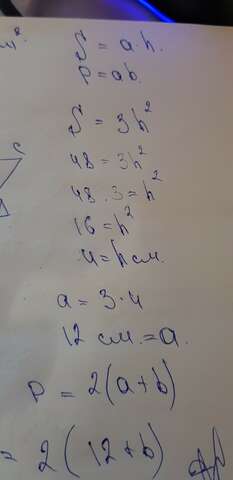 м².
S = a · h.
P = ab.
S = 3h²
48 = 3h²
48 : 3 = h²
16 = h²
4 = h см.
C
a = 3 · 4
12 см. = a.
P = 2(a+b)
= 2(12+b)